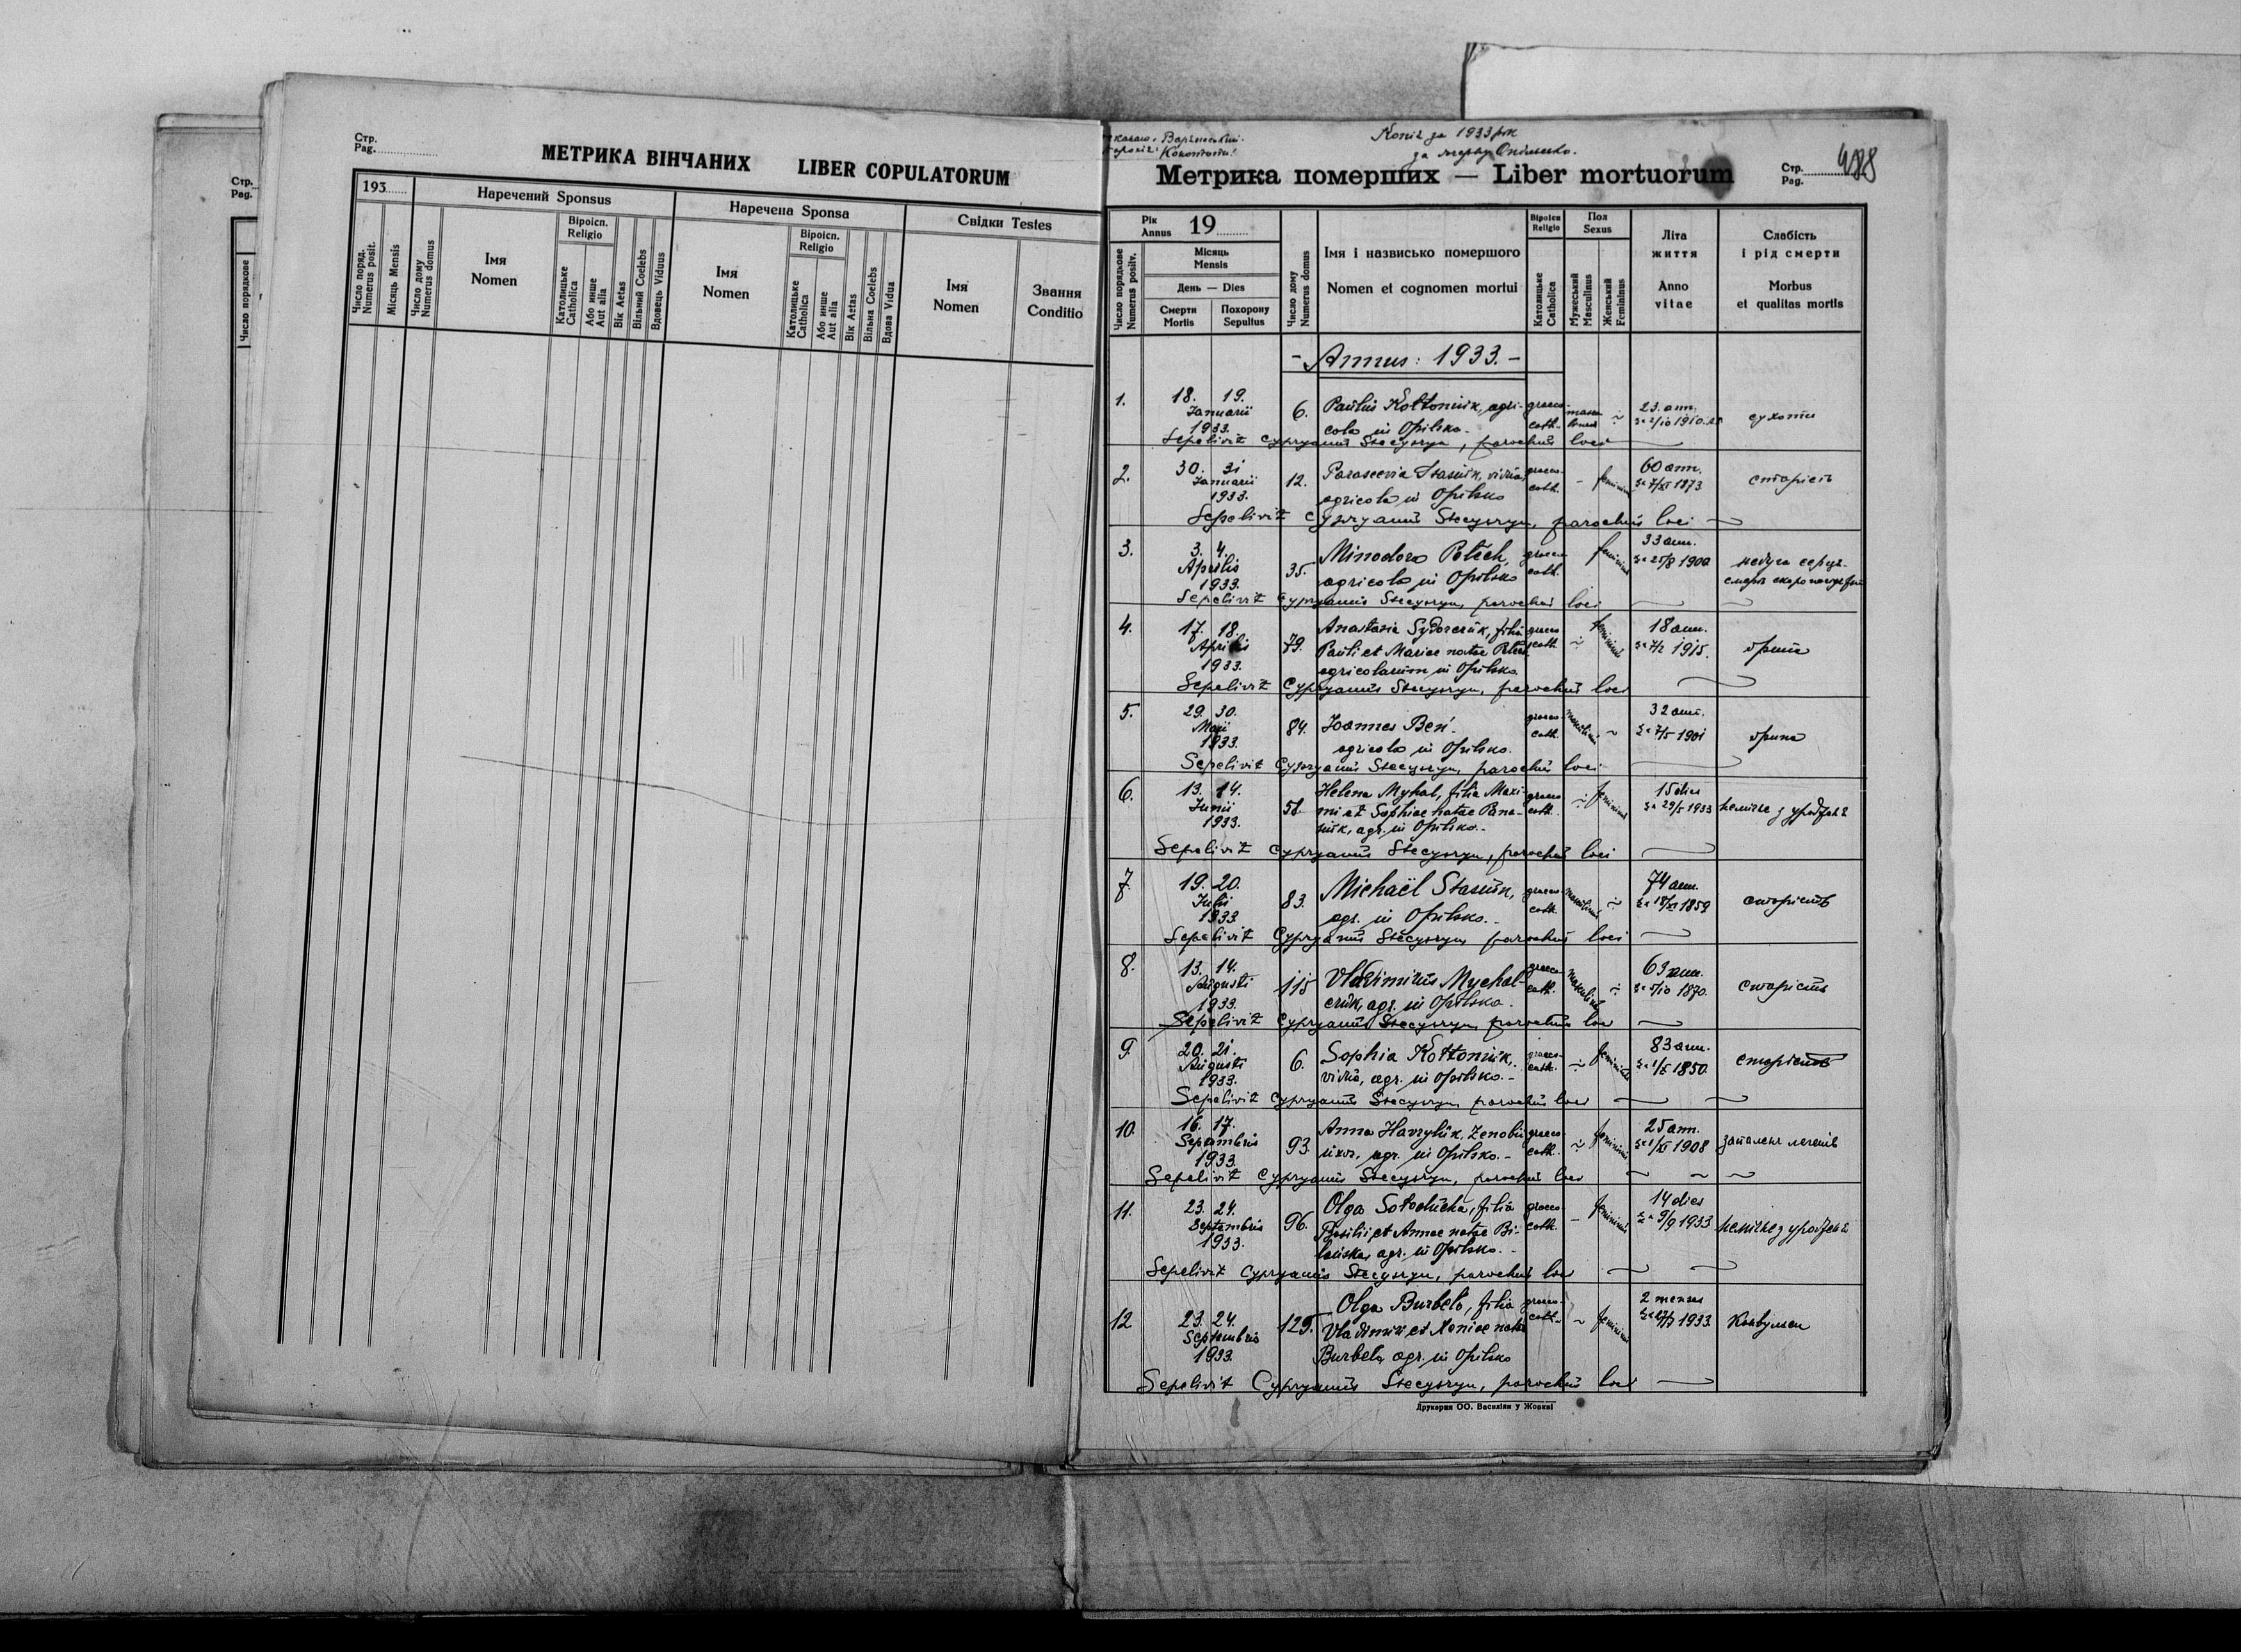 Стр.
Pag.
Число порядкове
Стр.
Pag.
МЕТРИКА ВІНЧАНИХ LIBER COPULATORUM
193
Наречений Sponsus
Наречена Sponsa
Свідки Testes
Число поряд.
Numerus posit.
Місяць Mensis
Число дому
Numerus domus
Імя
Nomen
Віроісп.
Religio
Католицьке
Catholica
Або инше
Aut alia
Вік Aetas
Вільний Coelebs
Вдовець Viduus
Імя
Nomen
Віроісп.
Religio
Католицьке
Catholica
Або инше
Aut alia
Вік Aetas
Вільна Coelebs
Вдова Vidua
Імя
Nomen
Звання
Conditio
Копія за 1933 рік
за
Метрика померших — Liber mortuorum
Стр.
Pag.
488
Рік
Annus 19
Число порядкове
Numerus positv.
Місяць
Mensis
День — Dies
Смерти
Mortis
Похорону
Sepultus
Число дому
Numerus domus
Імя і назвисько помершого
Nomen et cognomen mortui
Віроісп
Religio
Католицьке
Catholica
Пол
Sexus
Мужеський
Masculinus
Женський
Femininus
Літа
життя
Anno
vitae
Слабість
і рід смерти
Morbus
et qualitas mortis
- Annus: 1933. -
1. 18. 19. Januarii 1933. 6. Paulus Kołtoniuk, agri-
cola in Opilsko. graeco-cath. 23. ann. сухоти
Sepelivit Cypryanus Stecyszyn, parochus loci
2. 30. 31 Januarii 1933. 12. Parascevia Stasiuk, vidua,
agricola in Opilsko graeco-cath. 60 ann. 1873 старість
Sepelivit Cypryanus Stecyszyn, parochus loci
3. 3. 4. Aprilis 1933. 35. Minodora
agricola in Opilsko graeco-cath. 33 ann. 25/8 1900 недуга серця-
Sepelivit Cypryanus Stecyszyn, parochus loci
4. 17. 18. Aprilis 1933. 79. Anastasia Sydorczuk, filia
Pauli et Mariae natae
agricolarum in Opilsko graeco cath. 18 ann. 1915.
Sepelivit Cypryanus Stecyszyn, parochus loci
5. 29. 30. Maji 1933. 84. Joannes Beń.
agricola in Opilsko. graeco-cath. 32 ann. 1901
Sepelivit Cypryanus Stecyszyn, parochus loci
6. 13. 14. Junii 1933. Helena Myhal, filia Maxi-
mi et Sophiae natae Pana-
siuk, agr. in Opilsko. graeco cath. femininus 15 dies 1933 неміч з уродженя
Sepelivit Cypryanus Stecyszyn, parochus loci
7. 19. 20. Julii 1933 83. Michaël Stasiuk,
agr. in Opilsko. graeco-cath. 74 ann. 1859 старість
Sepelivit Cypryanus Stecyszyn, parochus loci
8. 13. 14. Augusti 1933. 115 Vladimirus Mychal-
czuk, agr. in Opilsko. graeco-cath. masculinus 63 ann. 1870. старість
Sepelivit Cypryanus Stecyszyn, parochus loci
9. 20. 21. Augusti 1933. 6. Sophia Kołtoniuk,
vidua, agr. in Opilsko. graeco-cath. femininus 83 ann. 1850. старість
Sepelivit Cypryanus Stecyszyn, parochus loci
10. 16. 17. Septembris 1933. 93. Anna Havryluk, Zenobii
uxor, agr. in Opilsko. graeco-cath. femininus 25 ann. 1908 запаленя легенів
Sepelivit Cypryanus Stecyszyn, parochus loci
11. 23. 24. Septembris 1933. 96. Olga Sołoducha, filia
Basilii et Annae natae Bi-
agr. in Opilsko. graeco-cath. femininus 14 dies 9/9 1933 неміч з уродженя
Sepelivit Cypryanus Stecyszyn, parochus loci
12 23. 24. Septembris 1933. 125. Olga Burbeło, filia
Vladimiri et natae
Burbeło agr. in Opilsko graeco-cath. femininus 2 menses 1933. Конвульси
Sepelivit Cypryanus Stecyszyn, parochus loci
Друкарня ОО. Василіян у Жовкві